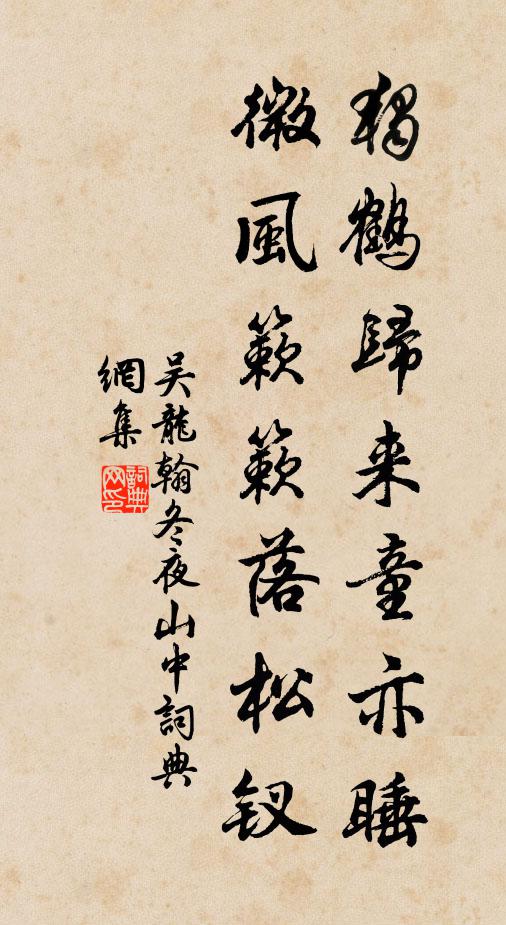 獨鶴歸来童亦睡
微風簌簌落松釵
吴龍翰冬夜山中詞典
網集
詞典网印